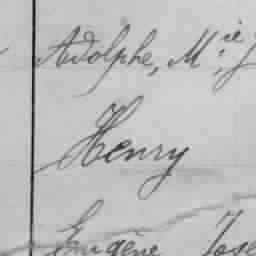 Adolphe, M.ie J
Henry
Eugène Jose